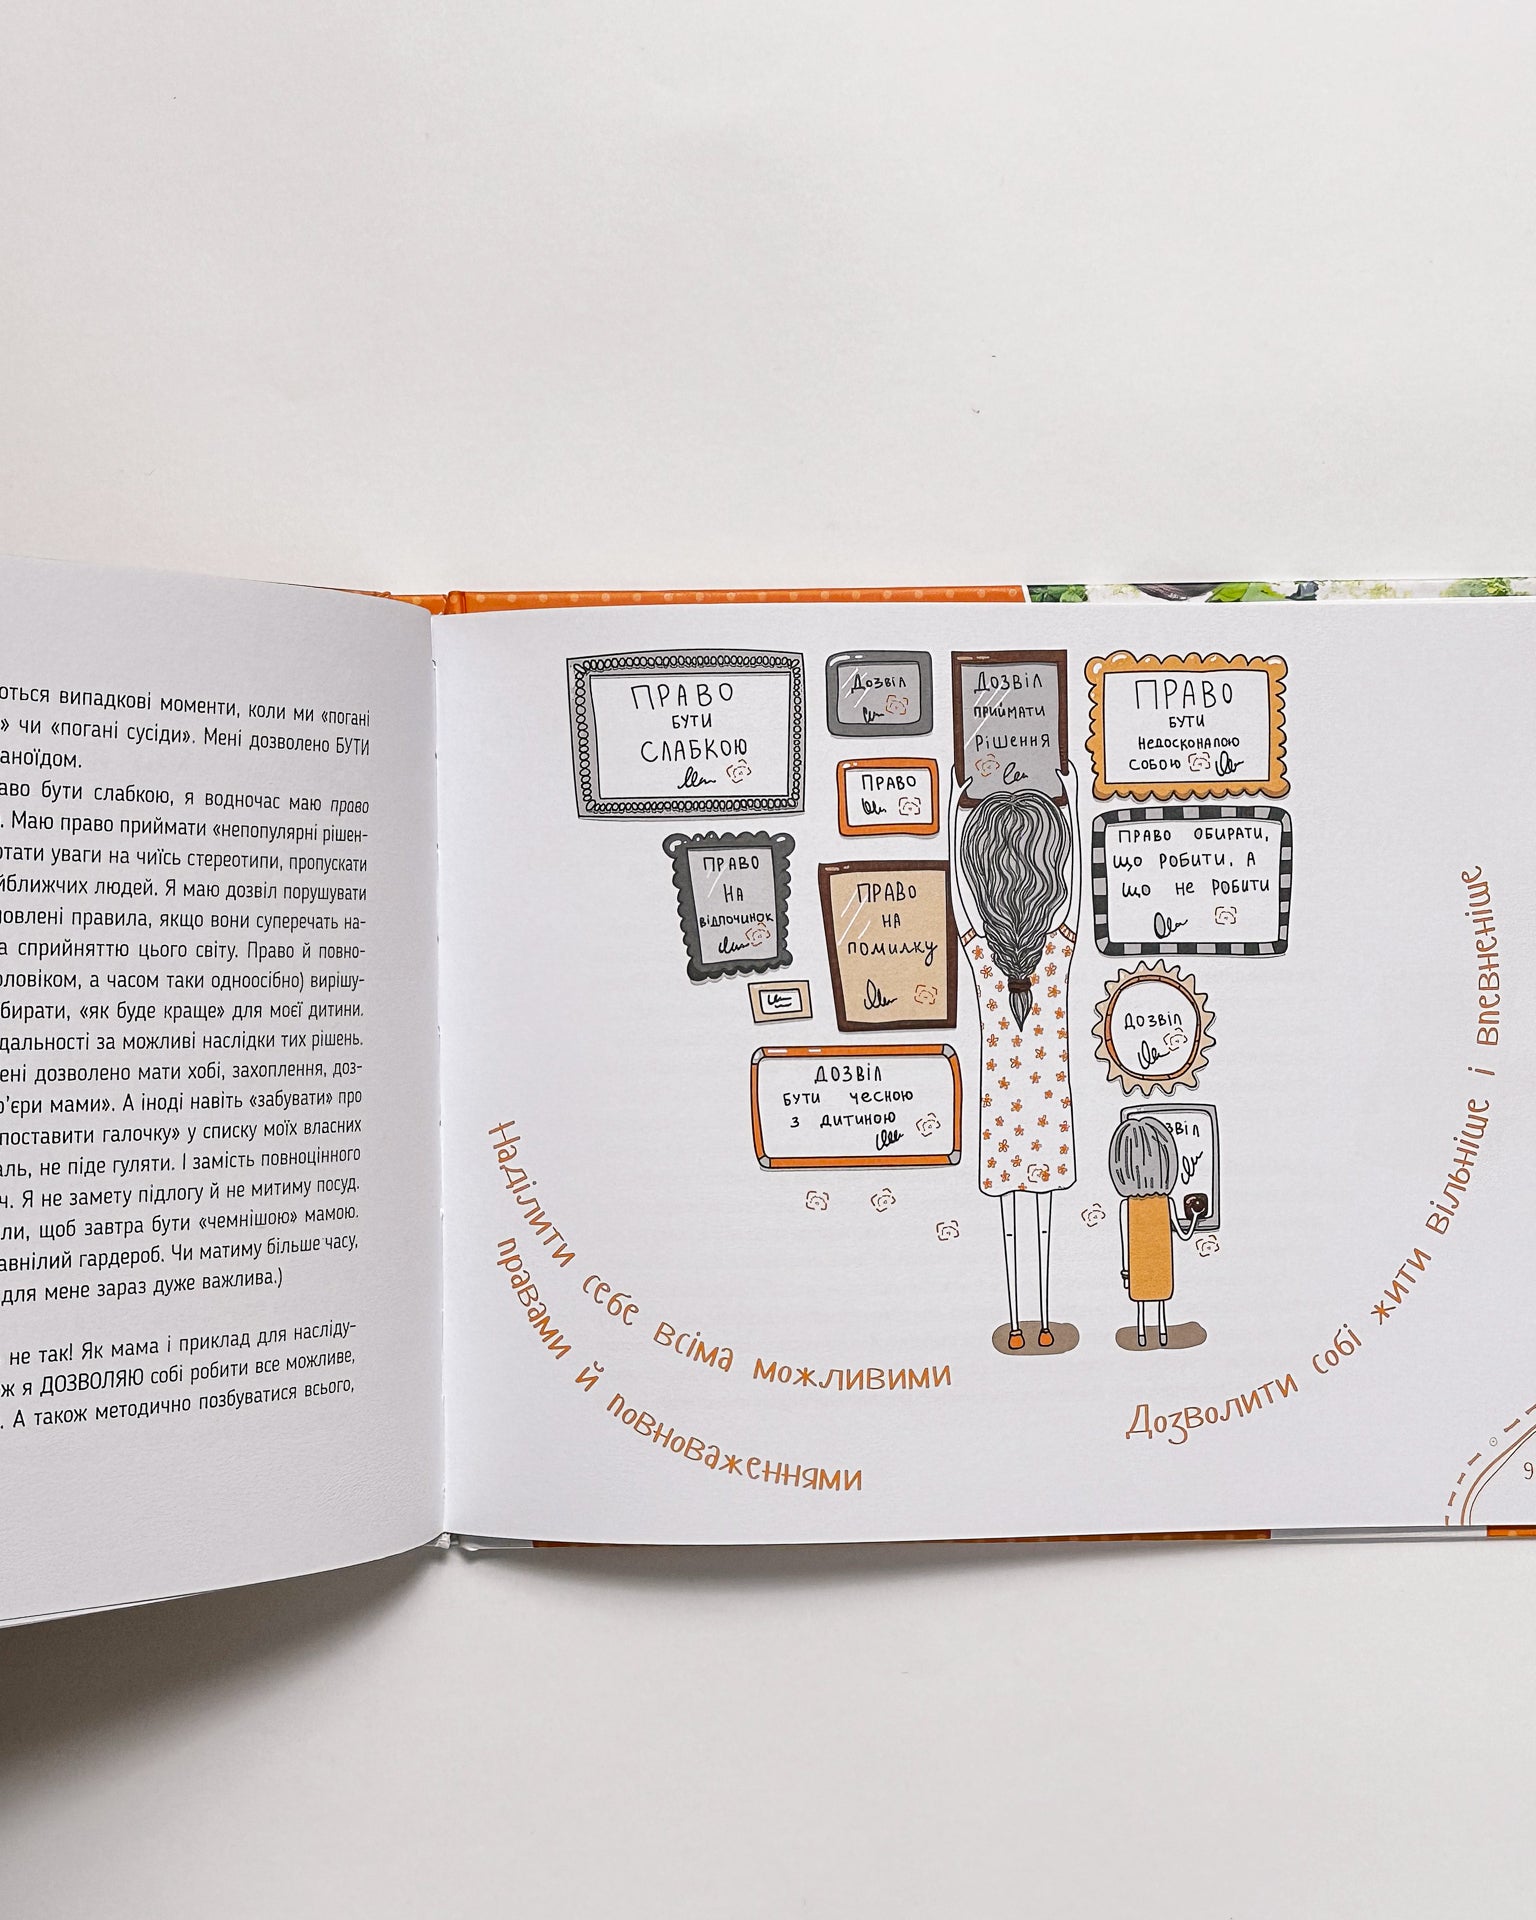 ються випадкові моменти, коли ми «погані
» чи «погані сусіди». Мені дозволено БУТИ
аноїдом.
аво бути слабкою, я водночас маю право
. Маю право приймати «непопулярні рішен-
ртати уваги на чиїсь стереотипи, пропускати
йближчих людей. Я маю дозвіл порушувати
новлені правила, якщо вони суперечать на-
а сприйняттю цього світу. Право й повно-
оловіком, а часом таки одноосібно) вирішу-
бирати, «як буде краще» для моєї дитини.
дальності за можливі наслідки тих рішень.
ені дозволено мати хобі, захоплення, доз-
р'єри мами». А іноді навіть «забувати» про
поставити галочку» у списку моїх власних
аль, не піде гуляти. І замість повноцінного
ч. Я не замету підлогу й не митиму посуд.
ли, щоб завтра бути «чемнішою» мамою.
авнілий гардероб. Чи матиму більше часу,
для мене зараз дуже важлива.)
не так! Як мама і приклад для насліду-
ж я ДОЗВОЛЯЮ собі робити все можливе,
. А також методично позбуватися всього,
ПРАВО
БУТИ
СЛАБКОЮ
Дозвіл
Дозвіл
приймати
рішення
ПРАВО
БУТИ
недосконалою
собою
Право
ПРАВО
НА
відпочинок
Право
на
помилку
Право обирати,
що робити, а
що не робити
Дозвіл
Дозвіл
бути чесною
з дитиною
звіл
Наділити себе всіма можливими
правами й повноваженнями
Дозволити собі жити вільніше і впевненіше
9